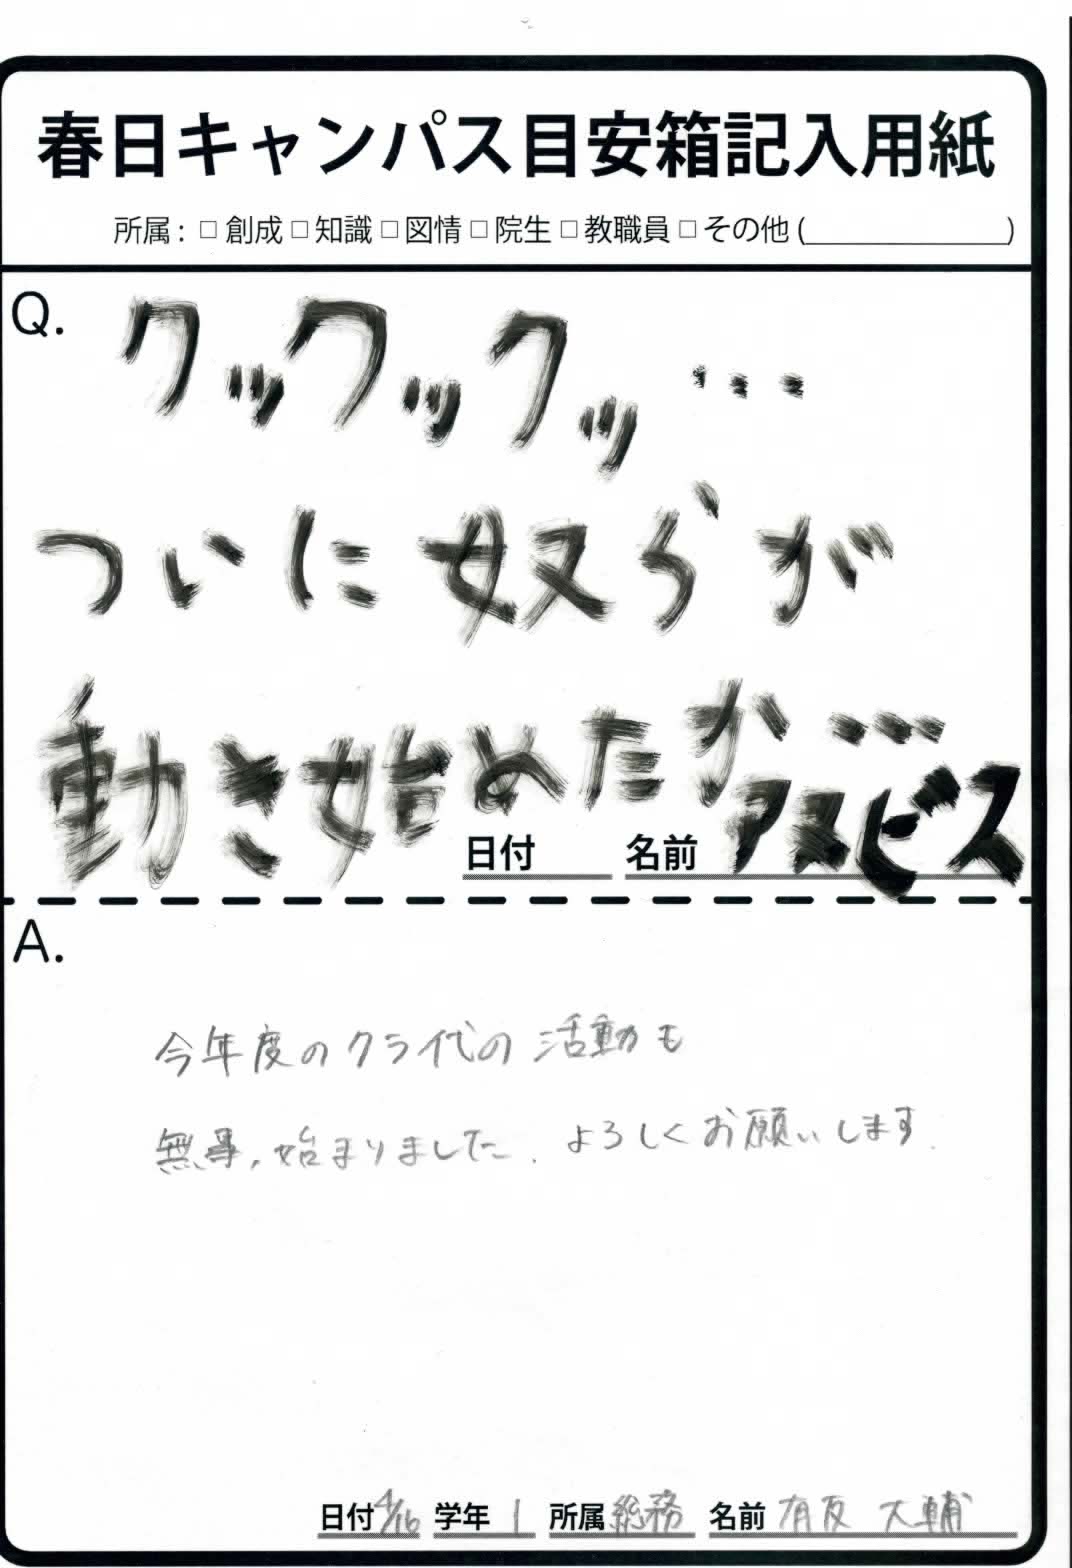 春日キャンパス目安箱記入用紙
所属：□ 創成 □ 知識 □ 図情 □ 院生 □ 教職員 □ その他 (          )
Q.
クックックッ…
ついに奴らが
動き始めたか…
日付 名前 アヌビス
A.
今年度のクラ代の活動も
無事、始まりました. よろしくお願いします.
日付 4/16 学年 1 所属 総務 名前 有友 大輔